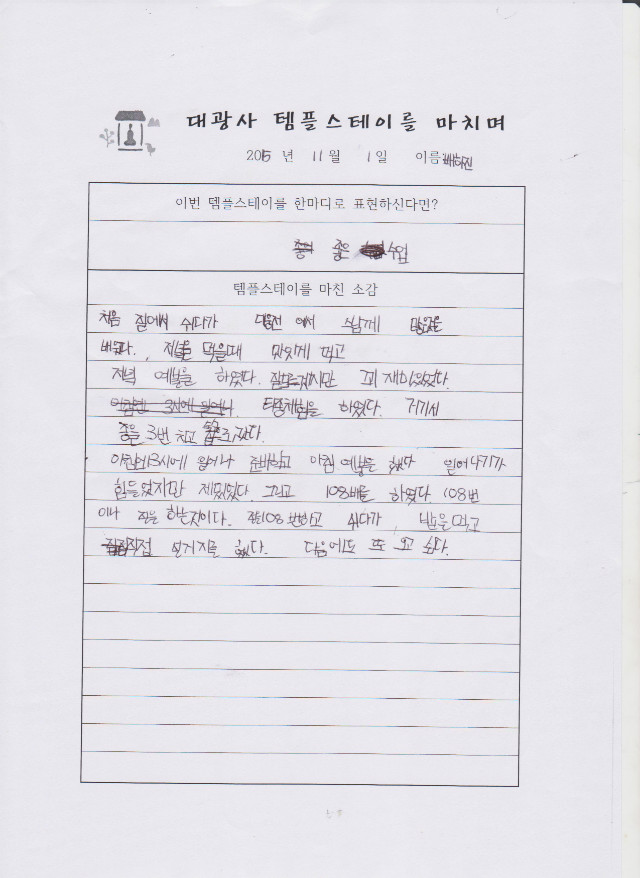 대광사 템플스테이를 마치며
2015 년 11 월 1 일 이름 배하진
이번 템플스테이를 한마디로 표현하신다면?
좋은 수업
템플스테이를 마친 소감
처음 집에서 쉬다가 대웅전 에서 스님께
배웠다. 저녁을 먹을때 맛있게 먹고
저녁 예불을 하였다. 지만 꾀 재미있었다.
타종체험을 하였다. 거기서
종을 3번 치고 갔다.
아침에3시에 일어나 준비하고 아침 예불을 했다 일어나기가
힘들었지만 제밌었다. 그리고 108배를 하였다. 108번
이나 절을 하는것이다. 108번하고 쉬다가, 밥을먹고
설거지를 했다. 다음에도 또 오고 싶다.